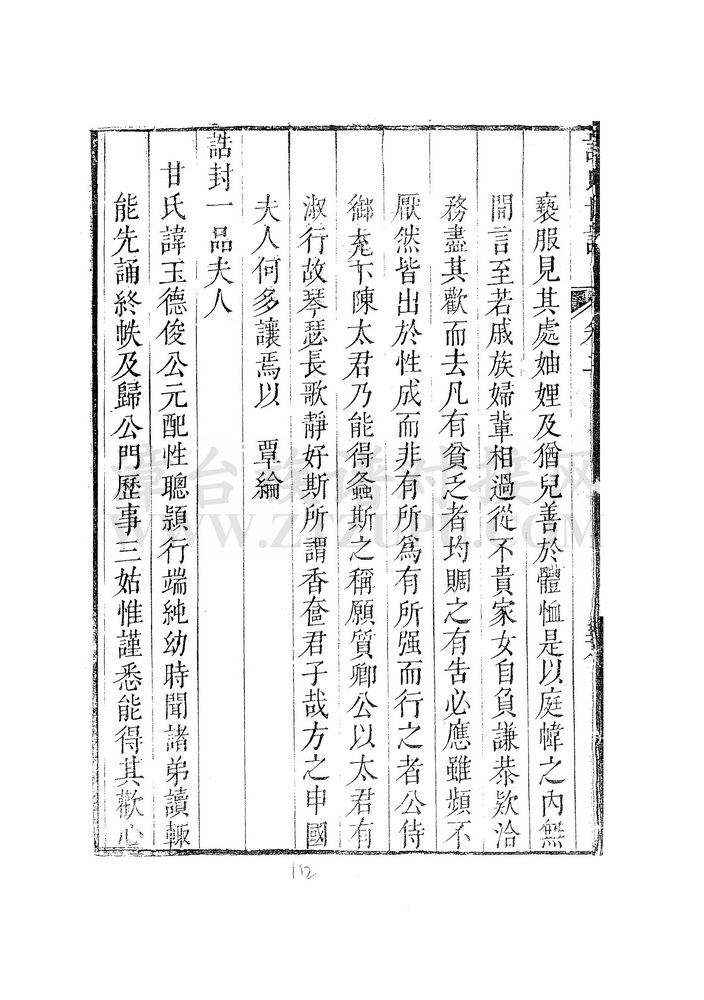 褻服見其處妯娌及猶兒善於體恤是以庭幃之內無
間言至若戚族婦輩相過從不貴家女自負謙恭欵洽
務盡其歡而去凡有貧乏者均賙之有告必應雖頻不
厭然皆出於性成而非有所爲有所强而行之者公侍
御充下陳太君乃能得螽斯之稱願質卿公以太君有
淑行故琴瑟長歌靜好斯所謂香奩君子哉方之申國
夫人何多讓焉以 覃綸
誥封一品夫人
甘氏諱玉德俊公元配性聰頴行端純幼時聞諸弟讀輒
能先誦終帙及歸公門歷事三姑惟謹悉能得其歡心
漳台族谱对接网
WWW.ZTZUPU.COM
112